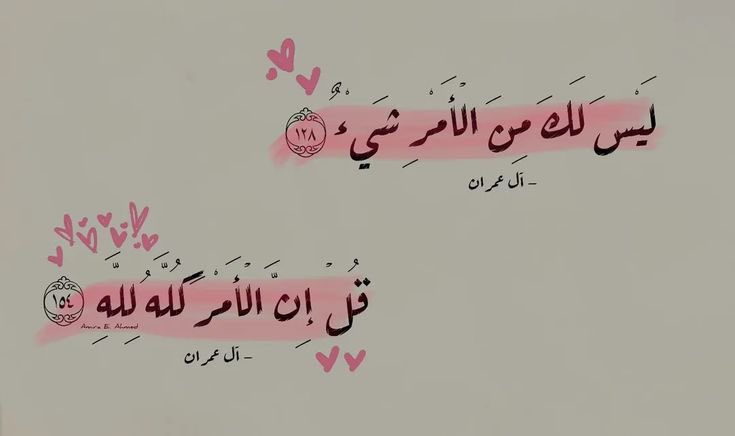 لَيْسَ لَكَ مِنَ الْأَمْرِ شَيْءٌ ١٢٨
- آل عمران
قُلْ إِنَّ الْأَمْرَ كُلَّهُ لِلَّهِ ١٥٤
Amra E. Ahmed
- آل عمران